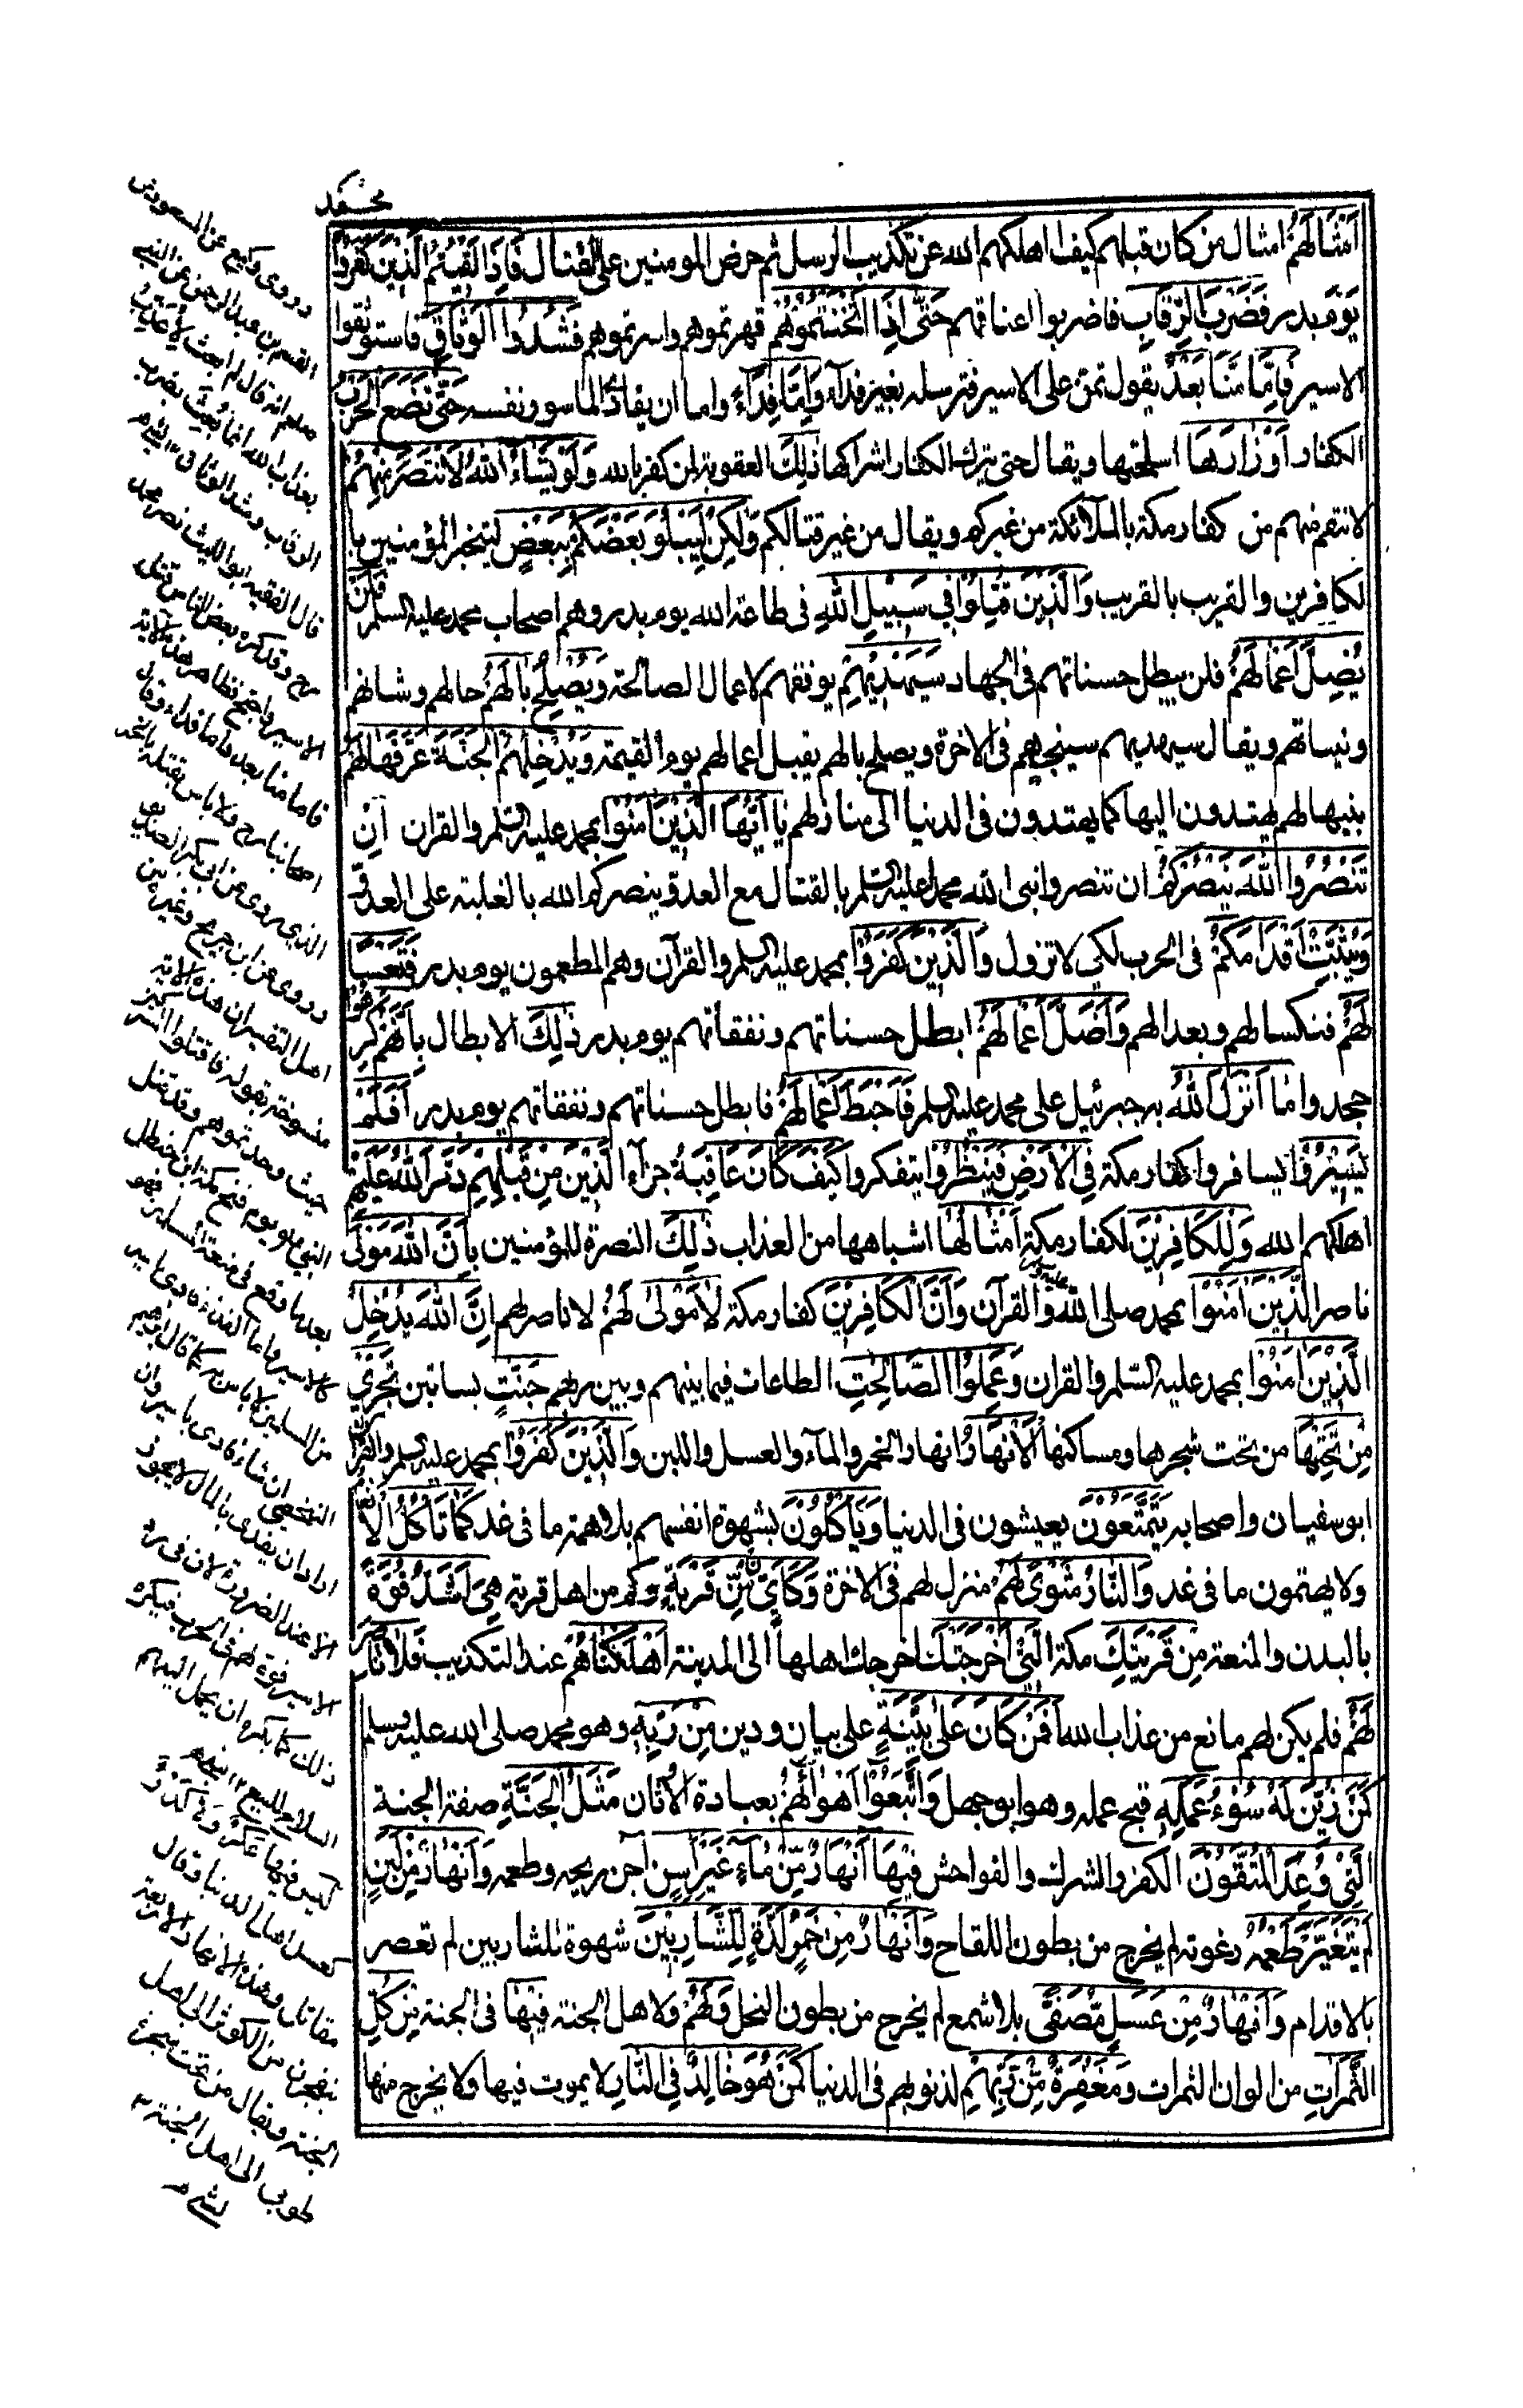 محمد
اَمْثَالَهُمْ امثال من كان قبلهم كيف اهلكهم الله عن تكذيب الرسل ثم حرض المومنين على القتال فَاِذَا لَقِيْتُمُ الَّذِيْنَ كَفَرُوْا
يوم بدر فَضَرْبَ الرِّقَابِ فاضربوا اعناقهم حَتّٰى اِذَا اَثْخَنْتُمُوْهُمْ قهرتموهم واسرتموهم فَشُدُّوا الْوَثَاقَ فاستوثقوا
الاسير فَاِمَّا مَنًّا بَعْدُ يقول تمن على الاسير فترسله بغير فدآء وَاِمَّا فِدَآءً واما ان يفادى الماسور نفسه حَتّٰى تَضَعَ الْحَرْبُ
الكفار اَوْزَارَهَا اسلحتها ويقال حتى يترك الكفار اشراكها ذٰلِكَ العقوبة لمن كفر بالله وَلَوْ يَشَآءُ اللّٰهُ لَانْتَصَرَ مِنْهُمْ
لانتقم منهم من كفار مكة بالملآئكة من غيركم ويقال من غير قتالكم وَلٰكِنْ لِيَبْلُوَ بَعْضَكُمْ بِبَعْضٍ ليختبر المؤمنين با
لكافرين والقريب بالقريب وَالَّذِيْنَ قُتِلُوْا فِيْ سَبِيْلِ اللّٰهِ فى طاعة الله يوم بدر وهم اصحاب محمد عليه السلم فَلَنْ
يُضِلَّ اَعْمَالَهُمْ فلن يبطل حسناتهم فى الجهاد سَيَهْدِيْهِمْ يوفقهم لاعمال الصالحة وَيُصْلِحُ بَالَهُمْ حالهم وشانهم
ونياتهم ويقال سيهديهم سينجيهم فى الاخرة ويصلح بالهم يقبل اعمالهم يوم القيمة وَيُدْخِلُهُمُ الْجَنَّةَ عَرَّفَهَا لَهُمْ
بنيها لهم يهتدون اليها كما يهتدون فى الدنيا الى منازلهم يٰاَيُّهَا الَّذِيْنَ اٰمَنُوْا بمحمد عليه السلم والقران اِنْ
تَنْصُرُوا اللّٰهَ يَنْصُرْكُمْ ان تنصروا نبى الله محمدا عليه السلم بالقتال مع العدو ينصركم الله بالغلبة على العدو
وَيُثَبِّتْ اَقْدَامَكُمْ فى الحرب لكي لا تزول وَالَّذِيْنَ كَفَرُوْا بمحمد عليه السلم والقرآن وهم المطعمون يوم بدر فَتَعْسًا
لَهُمْ فنكسا لهم وبعدا لهم وَاَضَلَّ اَعْمَالَهُمْ ابطل حسناتهم ونفقاتهم يوم بدر ذٰلِكَ الابطال بِاَنَّهُمْ كَرِهُوْا
جحدوا مَا اَنْزَلَ اللّٰهُ به جبرئيل على محمد عليه السلم فَاَحْبَطَ اَعْمَالَهُمْ فابطل حسناتهم ونفقاتهم يوم بدر اَفَلَمْ
يَسِيْرُوْا يسافروا كفار مكة فِي الْاَرْضِ فَيَنْظُرُوْا يتفكروا كَيْفَ كَانَ عَاقِبَةُ جزآء الَّذِيْنَ مِنْ قَبْلِهِمْ دَمَّرَ اللّٰهُ عَلَيْهِمْ
اهلكهم الله وَلِلْكَافِرِيْنَ لكفار مكة اَمْثَالُهَا اشباهها من العذاب ذٰلِكَ النصرة للمؤمنين بِاَنَّ اللّٰهَ مَوْلَى
ناصر الَّذِيْنَ اٰمَنُوْا بمحمد صلى الله عليه وسلم والقرآن وَاَنَّ الْكَافِرِيْنَ كفار مكة لَا مَوْلٰى لَهُمْ لا ناصر لهم اِنَّ اللّٰهَ يُدْخِلُ
الَّذِيْنَ اٰمَنُوْا بمحمد عليه السّلم والقران وَعَمِلُوا الصَّالِحٰتِ الطاعات فيما بينهم وبين ربهم جَنّٰتٍ بساتين تَجْرِيْ
مِنْ تَحْتِهَا من تحت شجرها ومساكنها الْاَنْهَارُ انهار الخمر والمآء والعسل واللبن وَالَّذِيْنَ كَفَرُوْا بمحمد عليه السلم والقرآن
ابو سفيان واصحابه يَتَمَتَّعُوْنَ يعيشون فى الدنيا وَيَاْكُلُوْنَ بشهوة انفسهم بلا همة ما فى غد كَمَا تَاْكُلُ الْاَنْعَامُ
ولا يهتمون ما فى غد وَالنَّارُ مَثْوًى لَهُمْ منزل لهم فى الاخرة وَكَاَيِّنْ مِّنْ قَرْيَةٍ وكم من اهل قرية هِيَ اَشَدُّ قُوَّةً
بالبدن والمنعة مِنْ قَرْيَتِكَ مكة الَّتِيْ اَخْرَجَتْكَ اخرجك اهلها الى المدينة اَهْلَكْنَاهُمْ عند التكذيب فَلَا نَاصِرَ
لَهُمْ فلم يكن لهم مانع من عذاب الله اَفَمَنْ كَانَ عَلٰى بَيِّنَةٍ على بيان ودين مِنْ رَبِّهٖ وهو محمد صلى الله عليه وسلم
كَمَنْ زُيِّنَ لَهٗ سُوْٓءُ عَمَلِهٖ قبح عمله وهو ابو جهل وَاتَّبَعُوْٓا اَهْوَآءَهُمْ بعبادة الاوثان مَثَلُ الْجَنَّةِ صفة الجنة
الَّتِيْ وُعِدَ الْمُتَّقُوْنَ الكفر والشرك والفواحش فِيْهَآ اَنْهَارٌ مِّنْ مَّآءٍ غَيْرِ اٰسِنٍ آجن ريحه وطعمه وَاَنْهَارٌ مِّنْ لَّبَنٍ
لَمْ يَتَغَيَّرْ طَعْمُهٗ دغوته لم يخرج من بطون اللقاح وَاَنْهَارٌ مِنْ خَمْرٍ لَّذَّةٍ لِّلشَّارِبِيْنَ شهوة للشاربين لم تعصر
بالاقدام وَاَنْهَارٌ مِنْ عَسَلٍ مُّصَفًّى بلا شمع لم يخرج من بطون النحل وَلَهُمْ ولاهل الجنة فِيْهَا فى الجنة مِنْ كُلِّ
الثَّمَرَاتِ من الوان الثمرات وَمَغْفِرَةٌ مِّنْ رَّبِّهِمْ لذنوبهم فى الدنيا كَمَنْ هُوَ خَالِدٌ فِي النَّارِ لا يموت فيها ولا يخرج منها
وروى وكيع عن المسعودى عن
القسم بن عبد الرحمن عن النبى
صلعم انه قال لم ابعث لاعذب
بعذاب الله انما بعثت بضرب
الرقاب وشد الوثاق
قال الفقيه ابو الليث نصر بن محمد
رح وقد كره بعض الناس قتل
الاسير واحتج بظاهر هذه الاية
فاما منا بعد واما فداء وقال
اصحابنا رح ولا باس بقتله بالخبر
الذى روى عن ابى بكر الصديق
وروى عن ابن جريج وغيره من
اهل التفسير ان هذه الاية
منسوخة بقوله فاقتلوا المشركين
حيث وجدتموهم وقد قتل
النبى صلم يوم فتح مكة ابن خطل
بعد ما وقع فى منعة المسلمين فهو
كالاسير واما الفداء فادى اسير
من المسلمين لا باس به كما قال ابراهيم
النخعى ان شاء فادى باسير وان
اراد ان يفدى بالمال لا يجوز
الا عند الضرورة لان فى رد
الاسير قوة لهم فى الحرب فيكره
ذلك كما يكره ان يحمل اليهم
السلاح للبيع
ليس فيها عكر ولا كدر
كعسل اهل الدنيا وقال
مقاتل وهذه الانهار الاربعة
يتفجرن من الكوثر الى اهل
الجنة ويقال من تحت شجرة
طوبى الى اهل الجنة